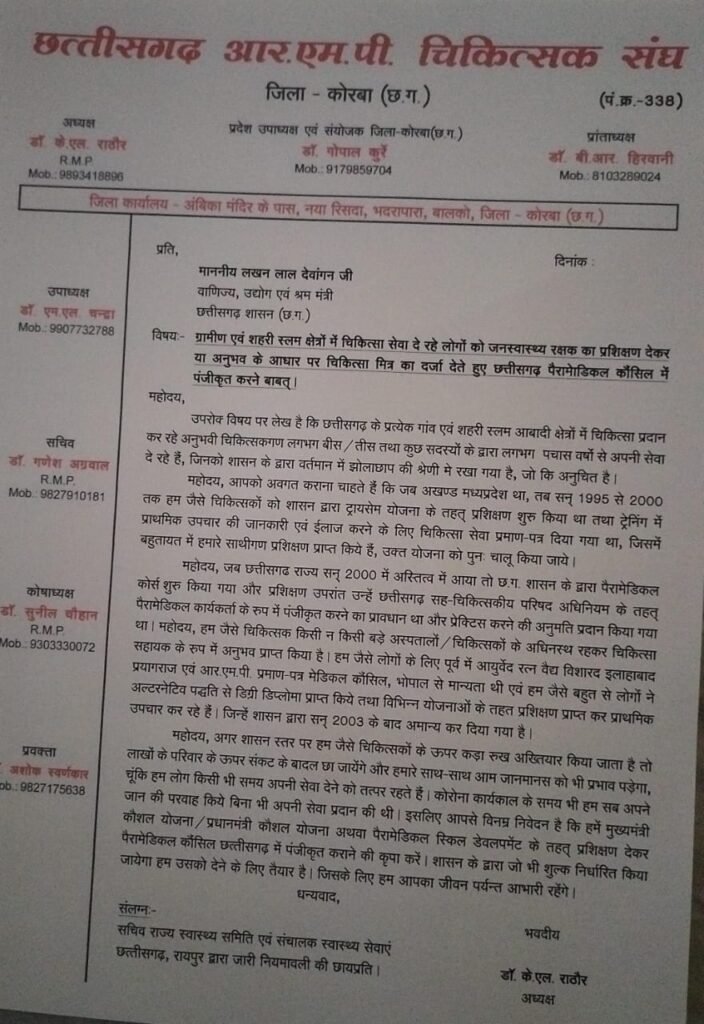 छत्तीसगढ़ आर.एम.पी. चिकित्सक संघ
जिला - कोरबा (छ.ग.)
(पं.क्र.-338)
अध्यक्ष
डॉ. के.एल. राठौर
R.M.P.
Mob.: 9893418896
प्रदेश उपाध्यक्ष एवं संयोजक जिला-कोरबा(छ.ग.)
डॉ. गोपाल कुर्रे
Mob.: 9179859704
प्रांताध्यक्ष
डॉ. बी.आर. हिरवानी
Mob.: 8103289024
जिला कार्यालय - अंबिका मंदिर के पास, नया रिसदा, भदरापारा, बालको, जिला - कोरबा (छ.ग.)
उपाध्यक्ष
डॉ. एम.एल. चन्द्रा
Mob.: 9907732788
सचिव
डॉ. गणेश अग्रवाल
R.M.P.
Mob.: 9827910181
कोषाध्यक्ष
डॉ. सुनील चौहान
R.M.P.
Mob.: 9303330072
प्रवक्ता
. अशोक स्वर्णकार
ob.: 9827175638
प्रति,
दिनांक :
माननीय लखन लाल देवांगन जी
वाणिज्य, उद्योग एवं श्रम मंत्री
छत्तीसगढ़ शासन (छ.ग.)
विषयः- ग्रामीण एवं शहरी स्लम क्षेत्रों में चिकित्सा सेवा दे रहे लोगों को जनस्वास्थ्य रक्षक का प्रशिक्षण देकर
या अनुभव के आधार पर चिकित्सा मित्र का दर्जा देते हुए छत्तीसगढ़ पैरामेडिकल कौंसिल में
पंजीकृत करने बाबत्।
महोदय,
उपरोक्त विषय पर लेख है कि छत्तीसगढ़ के प्रत्येक गांव एवं शहरी स्लम आबादी क्षेत्रों में चिकित्सा प्रदान
कर रहे अनुभवी चिकित्सकगण लगभग बीस/तीस तथा कुछ सदस्यों के द्वारा लगभग पचास वर्षो से अपनी सेवा
दे रहे हैं, जिनको शासन के द्वारा वर्तमान में झोलाछाप की श्रेणी मे रखा गया है, जो कि अनुचित है।
महोदय, आपको अवगत कराना चाहते हैं कि जब अखण्ड मध्यप्रदेश था, तब सन् 1995 से 2000
तक हम जैसे चिकित्सकों को शासन द्वारा ट्रायसेम योजना के तहत् प्रशिक्षण शुरु किया था तथा ट्रेनिंग में
प्राथमिक उपचार की जानकारी एवं ईलाज करने के लिए चिकित्सा सेवा प्रमाण-पत्र दिया गया था, जिसमें
बहुतायत में हमारे साथीगण प्रशिक्षण प्राप्त किये हैं, उक्त योजना को पुनः चालू किया जाये।
महोदय, जब छत्तीसगढ़ राज्य सन् 2000 में अस्तित्व में आया तो छ.ग. शासन के द्वारा पैरामेडिकल
कोर्स शुरु किया गया और प्रशिक्षण उपरांत उन्हें छत्तीसगढ़ सह-चिकित्सकीय परिषद अधिनियम के तहत्
पैरामेडिकल कार्यकर्ता के रुप में पंजीकृत करने का प्रावधान था और प्रेक्टिस करने की अनुमति प्रदान किया गया
था। महोदय, हम जैसे चिकित्सक किसी न किसी बड़े अस्पतालों/चिकित्सकों के अधिनस्थ रहकर चिकित्सा
सहायक के रुप में अनुभव प्राप्त किया है। हम जैसे लोगों के लिए पूर्व में आयुर्वेद रत्न वैद्य विशारद इलाहाबाद
प्रयागराज एवं आर.एम.पी. प्रमाण-पत्र मेडिकल कौंसिल, भोपाल से मान्यता थी एवं हम जैसे बहुत से लोगों ने
अल्टरनेटिव पद्धति से डिग्री डिप्लोमा प्राप्त किये तथा विभिन्न योजनाओं के तहत प्रशिक्षण प्राप्त कर प्राथमिक
उपचार कर रहे हैं। जिन्हें शासन द्वारा सन् 2003 के बाद अमान्य कर दिया गया है।
महोदय, अगर शासन स्तर पर हम जैसे चिकित्सकों के ऊपर कड़ा रुख अख्तियार किया जाता है तो
लाखों के परिवार के ऊपर संकट के बादल छा जायेंगे और हमारे साथ-साथ आम जानमानस को भी प्रभाव पड़ेगा,
चूंकि हम लोग किसी भी समय अपनी सेवा देने को तत्पर रहते हैं। कोरोना कार्यकाल के समय भी हम सब अपने
जान की परवाह किये बिना भी अपनी सेवा प्रदान की थी। इसलिए आपसे विनम्र निवेदन है कि हमें मुख्यमंत्री
कौशल योजना/प्रधानमंत्री कौशल योजना अथवा पैरामेडिकल स्किल डेवलपमेंट के तहत् प्रशिक्षण देकर
पैरामेडिकल कौंसिल छत्तीसगढ़ में पंजीकृत कराने की कृपा करें। शासन के द्वारा जो भी शुल्क निर्धारित किया
जायेगा हम उसको देने के लिए तैयार है। जिसके लिए हम आपका जीवन पर्यन्त आभारी रहेंगे।
धन्यवाद,
संलग्नः-
सचिव राज्य स्वास्थ्य समिति एवं संचालक स्वास्थ्य सेवाएं
छत्तीसगढ़, रायपुर द्वारा जारी नियमावली की छायप्रति।
भवदीय
डॉ. के.एल. राठौर
अध्यक्ष